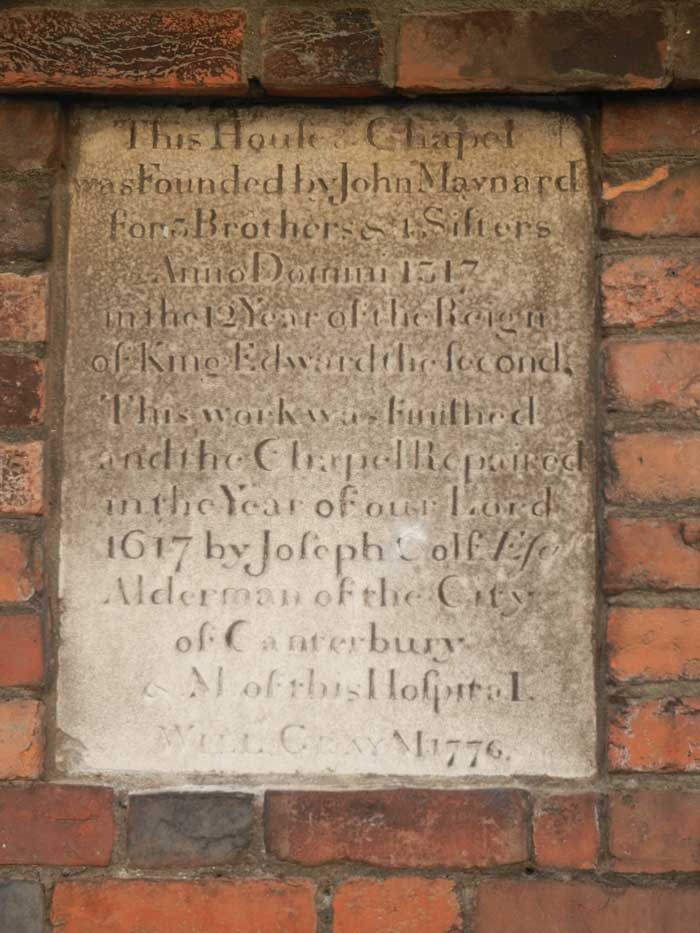 This Houſe & Chapel
was Founded by John Maynard
for 3 Brothers & 4 Siſters
Anno Domini 1317
in the 12 Year of the Reign
of King Edward the ſecond,
This work was finiſhed
and the Chapel Repaired
in the Year of our Lord
1617 by Joſeph Colf Eſq
Alderman of the City
of Canterbury
& M. of this Hoſpital.
WILL. GRAY M 1776.